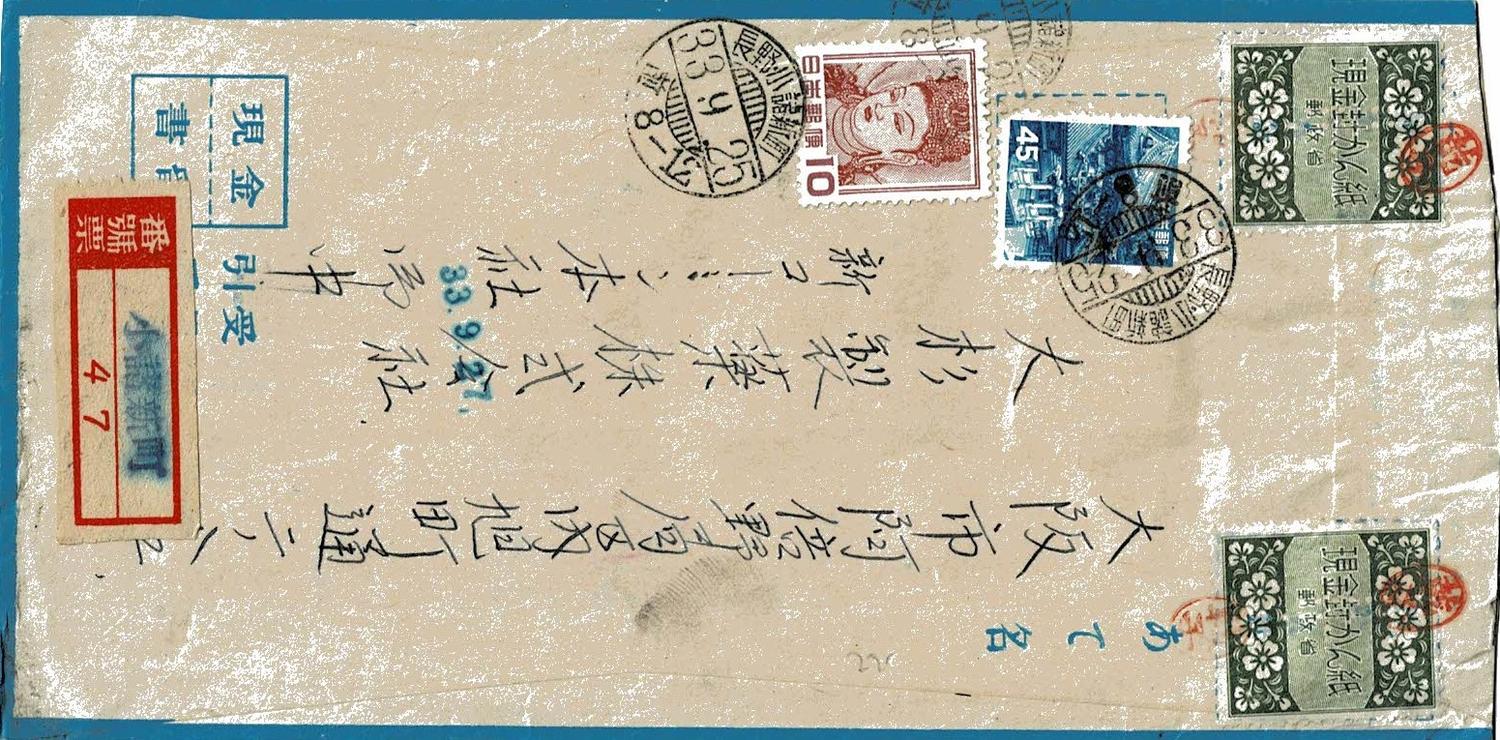 現金封かん紙
郵政省
現金封かん紙
郵政省
あて名
大阪市阿倍野局区内旭町通二
大杉製薬株式会社
本社
日本郵便
10
45
長野小諸新町
33.9.25
后8-12
長野・小諸新町
33.9.27.
現金
書留
引受
番號票
小諸新町
47